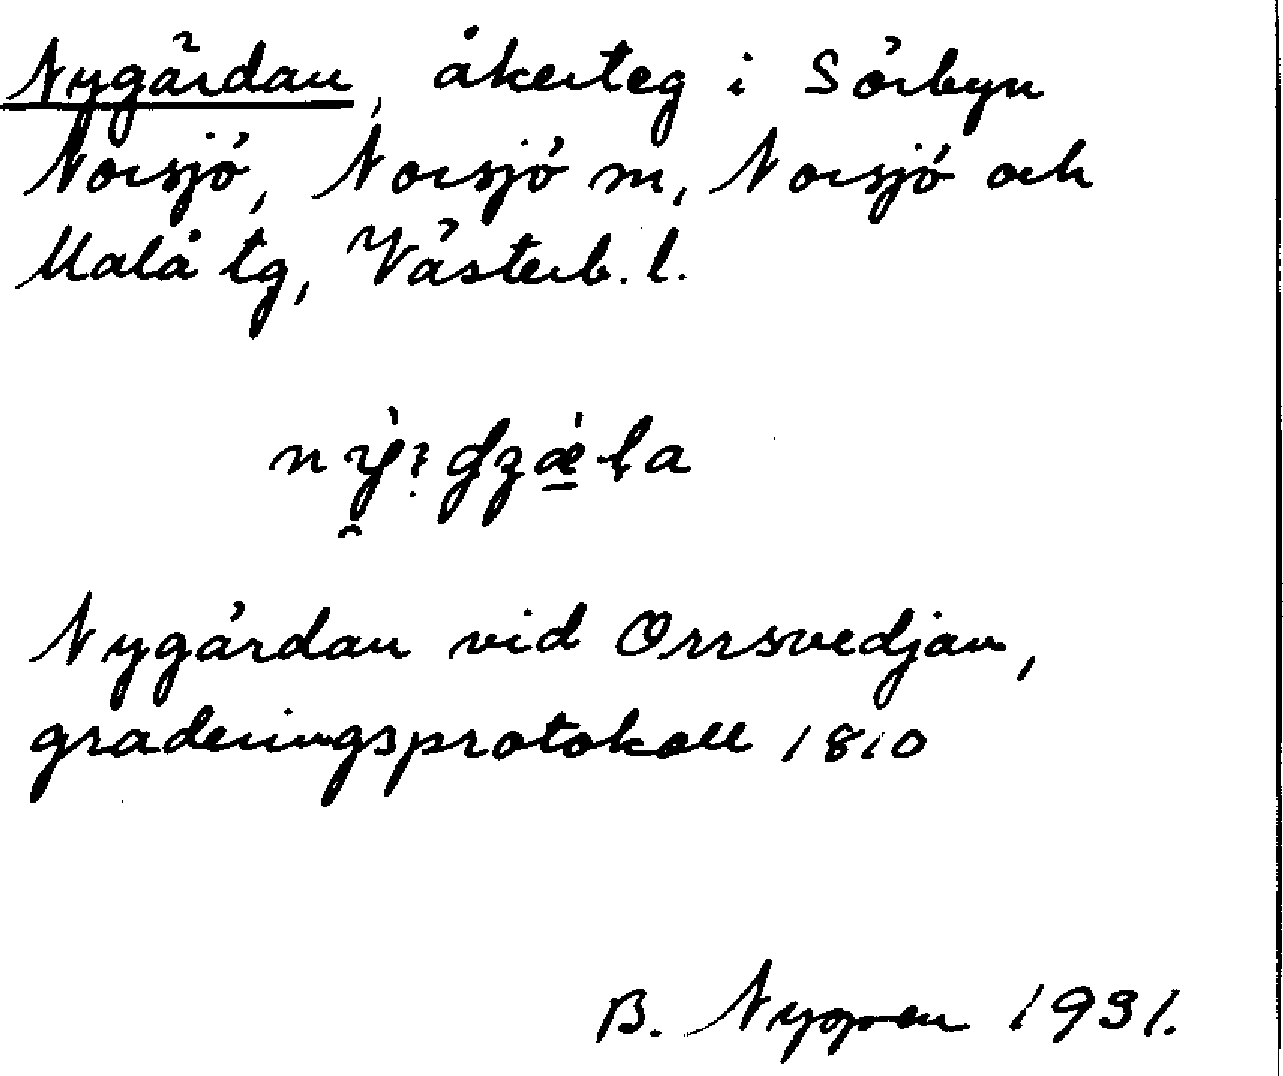 Nygärdan, åkerteg i Sörbyn
Norsjö, Norsjö m, Norsjö och
Malå tg, Västerb. l.
Nygärdan vid Orrsvedjan,
graderingsprotokoll 1810
B. Nyppen 1931.